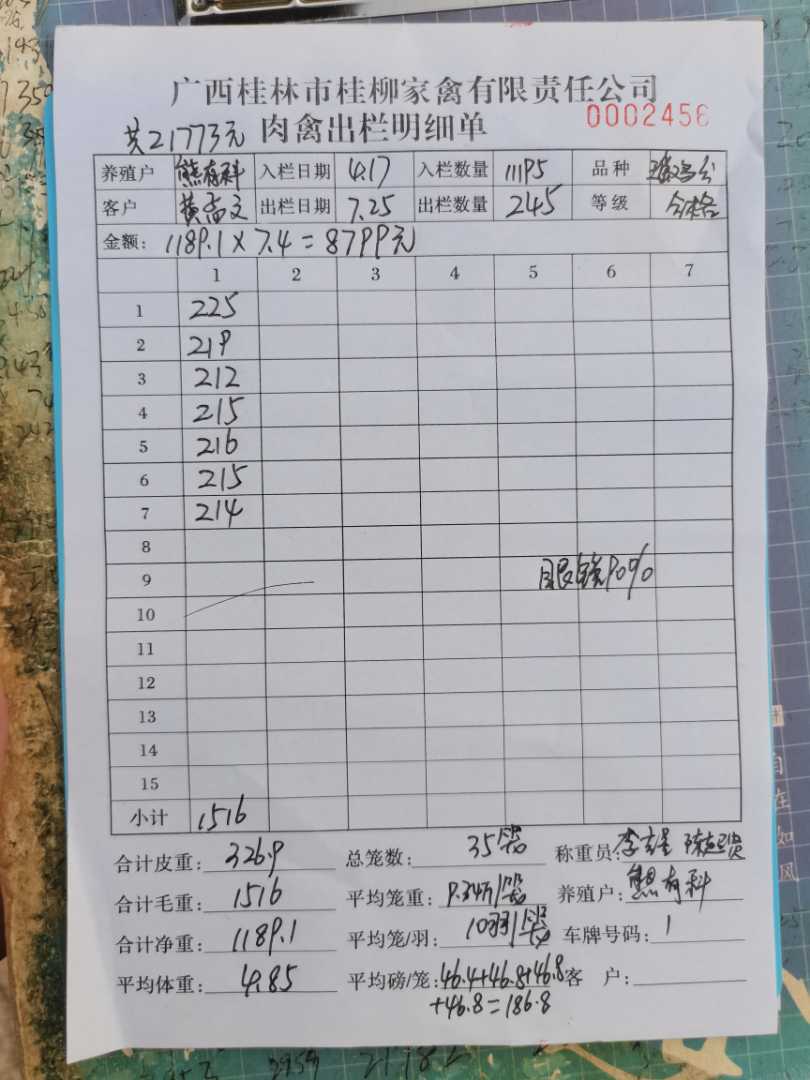 广西桂林市桂柳家禽有限责任公司
共21773元 肉禽出栏明细单 0002456
养殖户 熊有科 入栏日期 4.17 入栏数量 11195 品种
客户 黄孟文 出栏日期 7.25 出栏数量 245 等级 合格
金额: 1189.1×7.4=8799元
1 2 3 4 5 6 7
1 225
2 219
3 212
4 215
5 216
6 215
7 214
8
9 眼镜90%
10
11
12
13
14
15
小计 1516
合计皮重: 326.9 总笼数: 35笼 称重员:
合计毛重: 1516 平均笼重: 9.34斤/笼 养殖户: 熊有科
合计净重: 1189.1 平均笼/羽: 10羽/笼 车牌号码: 1
平均体重: 4.85 平均磅/笼: 46.4+46.8+46.8 客 户:
+46.8=186.8